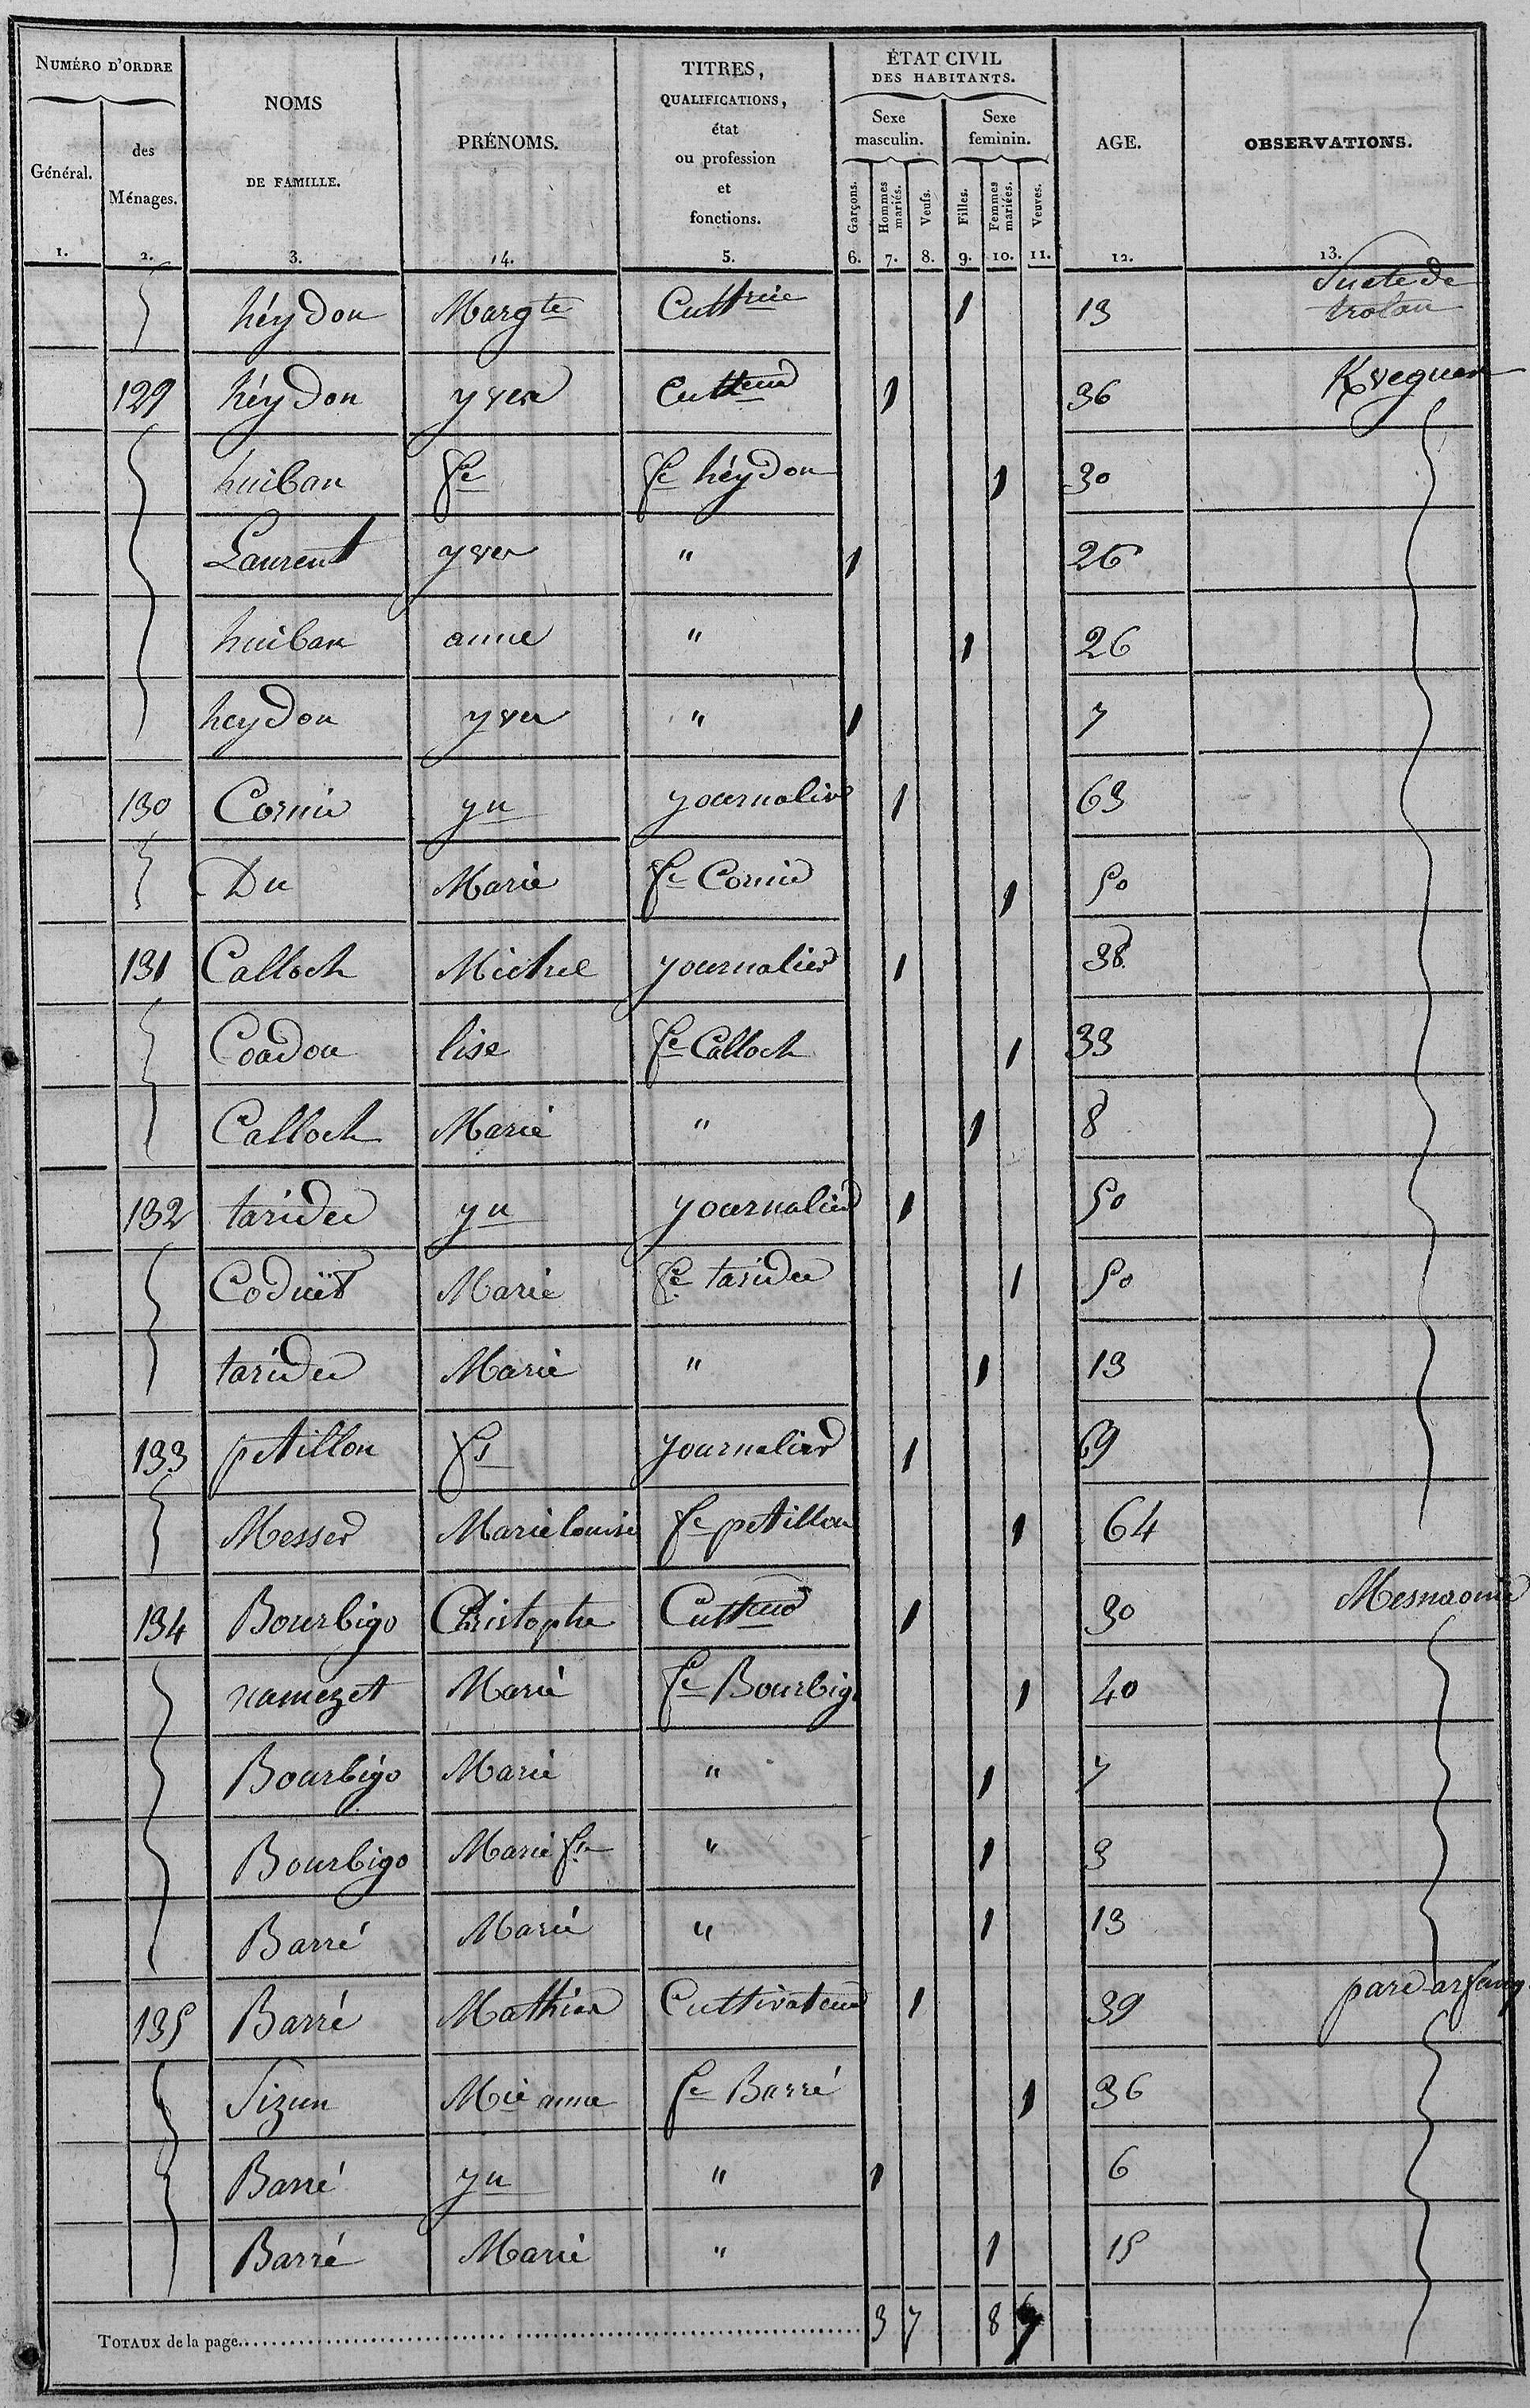 NUMÉRO D'ORDRE
Général.
des Ménages.
NOMS DE FAMILLE.
PRÉNOMS.
TITRES, QUALIFICATIONS, état ou profession et fonctions.
ÉTAT CIVIL DES HABITANTS.
Sexe masculin.
Sexe feminin.
Garçons.
Hommes mariés.
Veufs.
Filles.
Femmes mariées.
Veuves.
AGE.
OBSERVATIONS.
1. 2. 3. 4. 5. 6. 7. 8. 9. 10. 11. 12. 13.
héydon Margte Cultrice 1 13 Suete de trolan
129 héydon yves Culteur 1 36 Kveguen
huiban fe fe héydon 1 30
Laurent yves " 1 26
huiban anne " 1 26
heydon yves " 1 7
130 Cornic yn journalier 1 63
Du Marie fe Cornic 1 50
131 Calloch Michel journalier 1 38
Coadou lise fe Calloch 1 33
Calloch Marie " 1 8
132 taridec yn journalier 1 50
Coduët Marie fe taridec 1 50
taridec Marie " 1 13
133 petillon fs journalier 1 69
Messer Marie louise fe petillon 1 64
134 Bourbigo Christophe Culteur 1 30
namezet Marie fe Bourbigo 1 40
Bourbigo Marie " 1 7
Bourbigo Marie fse " 1 3
Barré Marie " 1 13
135 Barré Mathieu Cultivateur 1 39
Sizun Mie anne fe Barré 1 36
Barré yn " 1 6
Barré Marie " 1 15
TOTAUX de la page 3 7 8 7